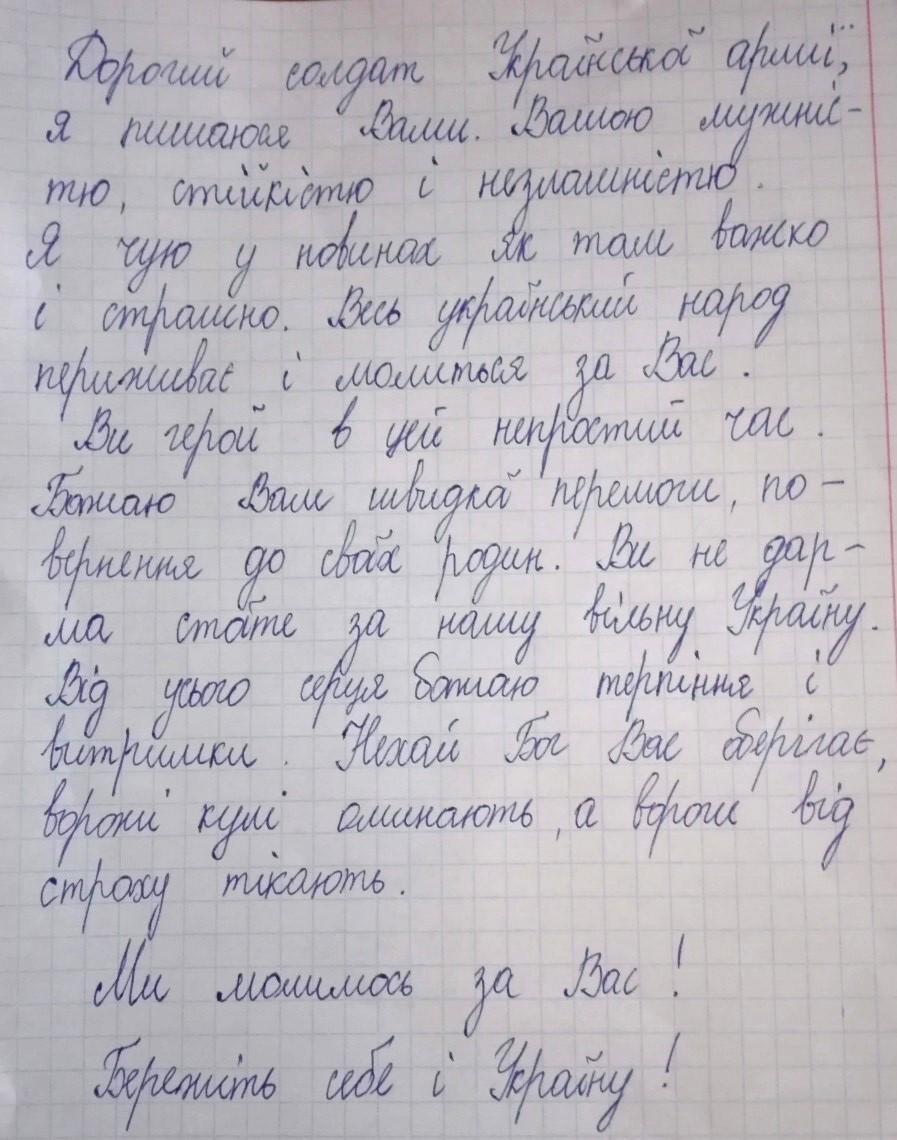 Дорогий солдат Української армії,
я пишаюся Вами. Вашою мужніс-
тю, стійкістю і незламністю.
Я чую у новинах як там важко
і страшно. Весь український народ
переживає і молиться за Вас.
Ви герой в цей непростий час.
Бажаю Вам швидкої перемоги, по-
вернення до своїх родин. Ви не дар-
ма стоїте за нашу вільну Україну.
Від усього серця бажаю терпіння і
витримки. Нехай Бог Вас оберігає,
ворожі кулі оминають, а вороги від
страху тікають.
Ми молимось за Вас!
Бережіть себе і Україну!